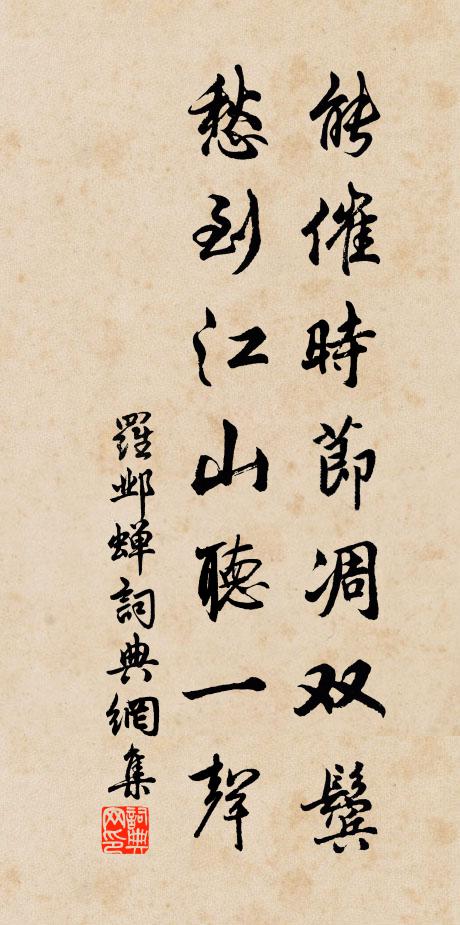 能催時節凋双鬢
愁到江山聽一聲
羅邺蝉詞典網集
詞典网印